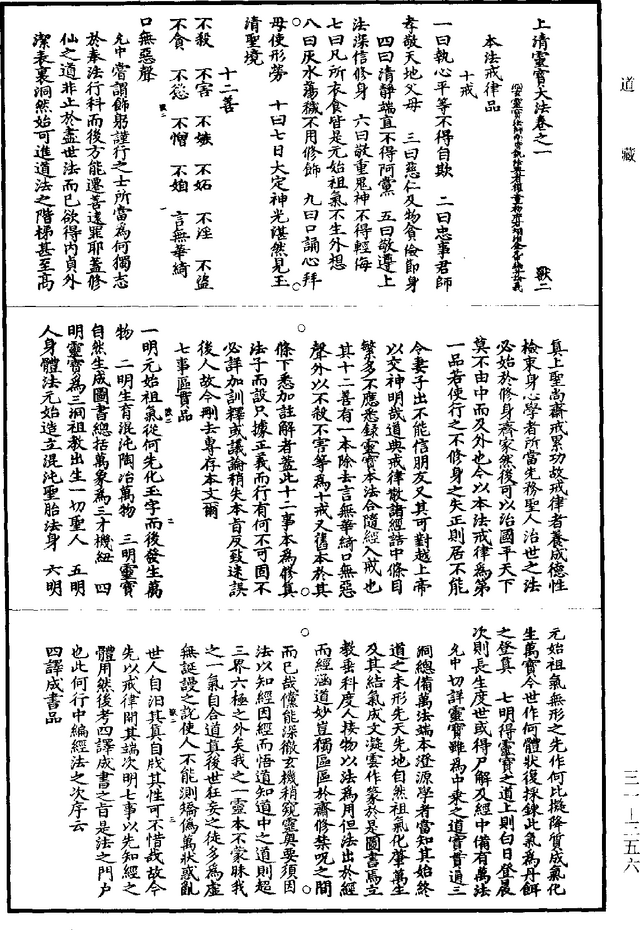 道藏
上清靈寶大法卷之一 獸二
本法戒律品
十戒
一曰執心平等不得自欺　二曰忠事君師
孝敬天地父母　三曰慈仁及物貪儉節身
四曰清靜端直不得阿黨　五曰敬遵上
法深信修身　六曰敬重鬼神不得輕侮
七曰凡所衣食皆是元始祖氣不生外想
八曰灰水蕩穢不用修飾　九曰口誦心拜
毋使形勞　十曰七日大定神光湛然見玉
清聖境
十二善
不殺　不害　不嫉　不妬　不淫　不盜
不貪　不慾　不憎　不　言無華綺
口無惡聲
允中嘗謂飾躬謹行之士所當為何獨志
於奉法行科而後方能遷善遠罪耶蓋修
仙之道非止於盡世法而已欲得內貞外
潔表裏洞然始可進道法之階梯甚至高
真上聖尚齋戒累功故戒律者養成德性
檢束身心學者所當先務聖人治世之法
必始於修身齊家然後可以治國平天下
莫不由中而及外也今以本法戒律為第
一品若使行之不修身之失正則居不能
令妻子出不能信朋友又其可對越上帝
以交神明哉道典戒律散諸經誥中條目
繁多不應悉録靈寶本法合隨經入戒也
其十二善有一本除去言無華綺口無惡
聲外以不殺不害等為十戒又舊本於其
條下悉加註解者蓋此十二事本為修真
法子而設只據正義而行有何不可固不
必詳加訓釋或議論稍失本旨反致迷誤
後人故今刪去專存本文爾
七事區貫品
一明元始祖氣從何先化玉字而後發生萬
物　二明生育混沌陶冶萬物　三明靈寶
自然生成圖書總括萬象為三才機紐　四
明靈寶為三洞祖教出生一切聖人　五明
人身體法元始造立混沌聖胎法身　六明
元始祖氣無形之先作何比擬降質成氣化
生萬寶今世作何體狀復採鍊此氣為丹餌
之登真　七明得靈寶之道上則白日登晨
次則長生度世或得尸解及經中備有萬法
允中切詳靈寶雖為中乘之道實貫通三
洞總備萬法端本澄源學者當知其始終
道之未形先天先地自然祖氣化肇萬生
及其結氣成文凝雲作篆於是圖書焉立
教垂科度人接物以法為用但法出於經
而經涵道妙豈獨區區於齋修禁呪之間
而已哉儻能深徹玄機稍窺靈奧要須因
法以知經因經而悟道知道中之道則超
三界六極之外矣我之一靈本不蒙昧我
之一氣自合道真後世狂妄之徒多為虛
無誕謾之說使人不能測矯偽萬狀惑亂
世人自汨其真自戕其性可不惜哉故今
先以戒律開其端次明七事以先知經之
體用然後考四譯成書之旨是法之門户
也此何行中編經法之次序云
四譯成書品
三一—二五六